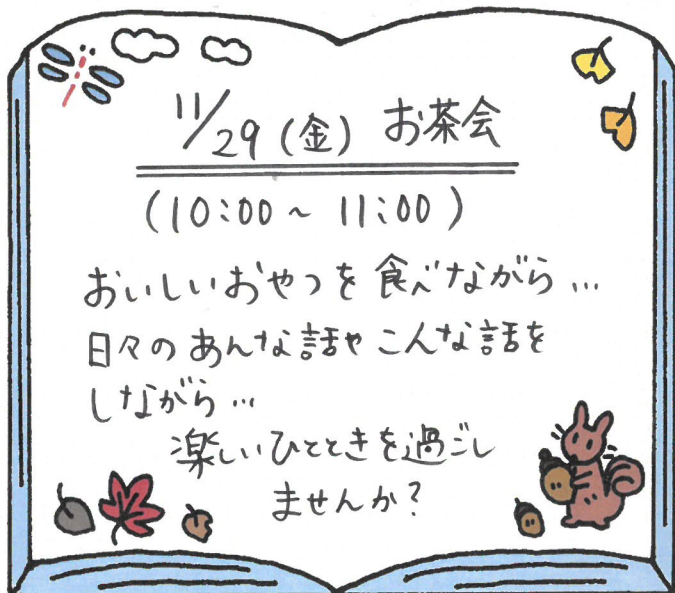 11/29(金) お茶会
(10:00~11:00)
おいしいおやつを食べながら…
日々のあんな話やこんな話を
しながら…
楽しいひとときを過ごし
ませんか?